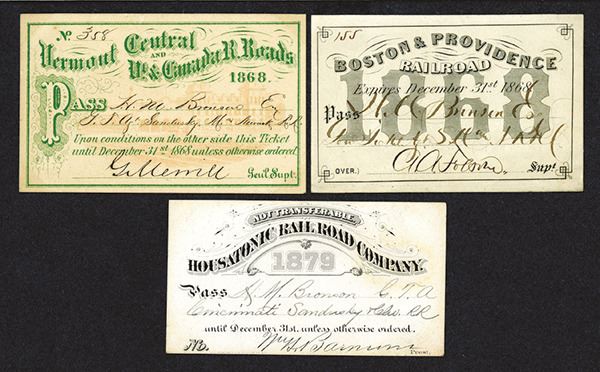 No. 358
Vermont Central
AND
Vt. & Canada R. Roads
1868.
Pass H. M. Bronson Eq
Sandusky
Upon conditions on the other side this Ticket
until December 31st 1868 unless otherwise ordered
G. Merrill Genl. Supt.
155
BOSTON & PROVIDENCE
RAILROAD
1868
Expires December 31st 1868
Pass H. M. Bronson Eq
(OVER.) A. A. Folsom Supt.
NOT TRANSFERABLE.
HOUSATONIC RAIL ROAD COMPANY.
1879
Pass H. M. Bronson G. T. A
Cincinnati Sandusky & Clev. RR
until December 31st. unless otherwise ordered.
No. Wm H Barnum
Prest.